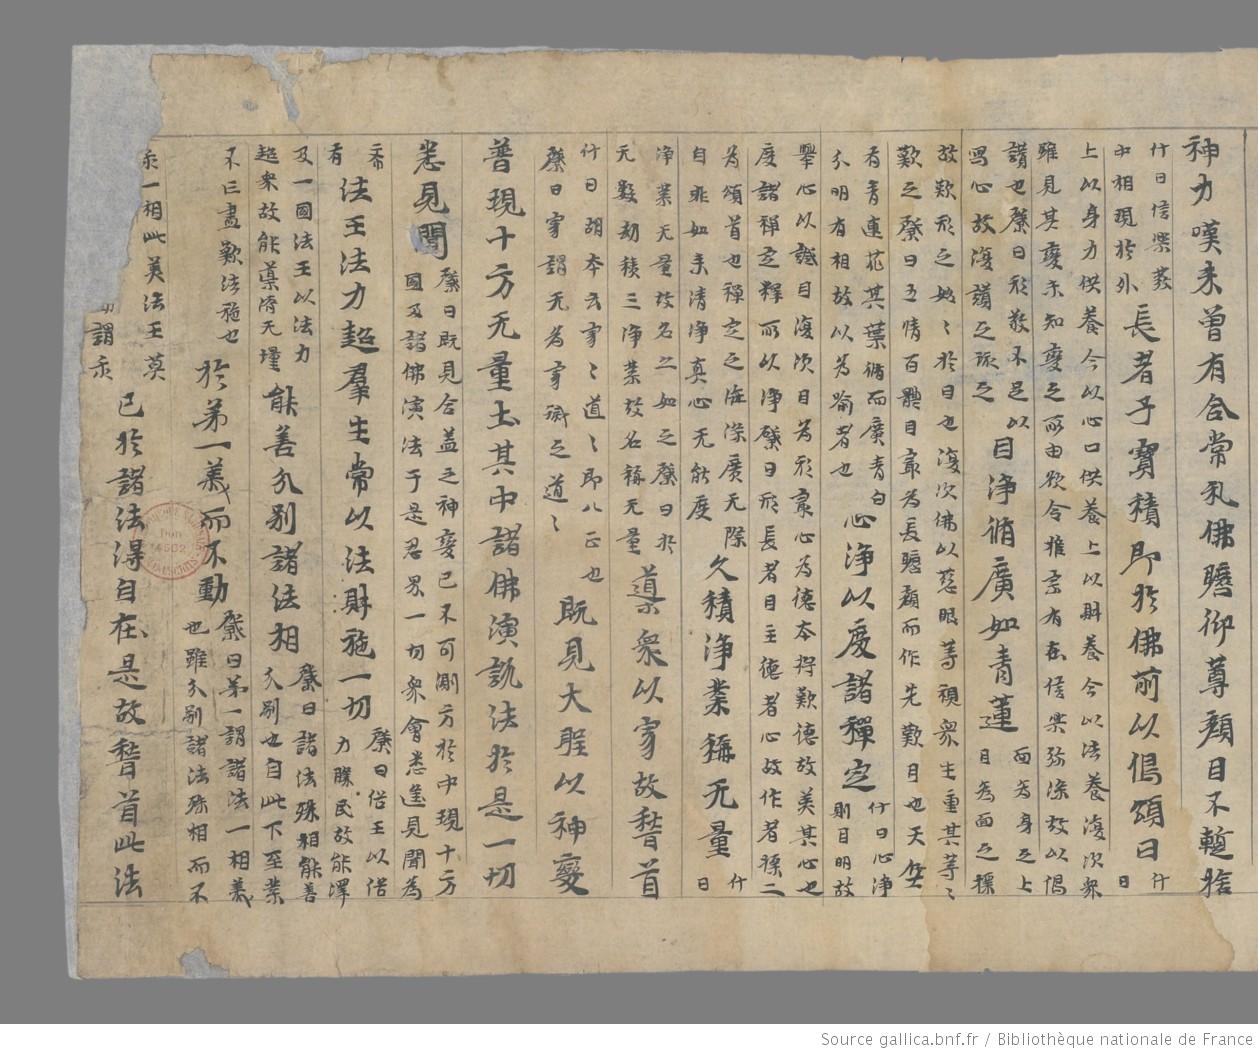 神力嘆未曾有合常礼佛瞻仰尊顏目不蹔捨
什曰信樂
中相現於外
長者子寶積即於佛前以偈頌曰
什
曰
上以身力供養今以心口供養上以財養今以法養復次眾
雖見其變未知變之所由欲令推宗有在信樂弥深故以偈
讃也肇曰形敬不足以
寫心故復諷之詠之
目淨脩廣如青蓮
面為身之上
目為面之標
故歎形之始〻於目也復次佛以慈眼等視眾生重其等〻
歎之肇曰五情百骸目最為長瞻顏而作先歎目也天竺
有青連花其葉脩而廣青白
分明有相故以為喻者也
心淨以度諸禪定
什曰心淨
則目明故
舉心以證目復次目為形最心為德本將歎德故美其心也
度諸禪定釋所以淨肇曰形長者目主德者心故作者標二
為頌首也禪定之海深廣无際
自非如来清淨真心无能度
久積淨業稱无量
什
曰
淨業无量故名亦如之肇曰於
无數劫積三淨業故名稱无量
導眾以寂故稽首
什曰胡本云寂〻道〻即八正也
肇曰寂謂无為寂滅之道〻
既見大聖以神變
普現十方无量土其中諸佛演說法於是一切
悉見聞
肇曰既見合盖之神變已不可測方於中現十方
國及諸佛演法于是忍界一切眾會悉遙見聞為
希
有
法王法力超羣生常以法財施一切
肇曰俗王以俗
力勝民故能澤
及一國法王以法力
超眾故能導濟无壃
能善分別諸法相
肇曰諸法殊相能善
分別也自此下至業
不亡盡歎法施也
於第一義而不動
肇曰第一謂諸法一相義
也雖分別諸法殊相而不
乖一相此美法王莫
謂乖
已於諸法得自在是故稽首此法
Source gallica.bnf.fr / Bibliothèque nationale de France